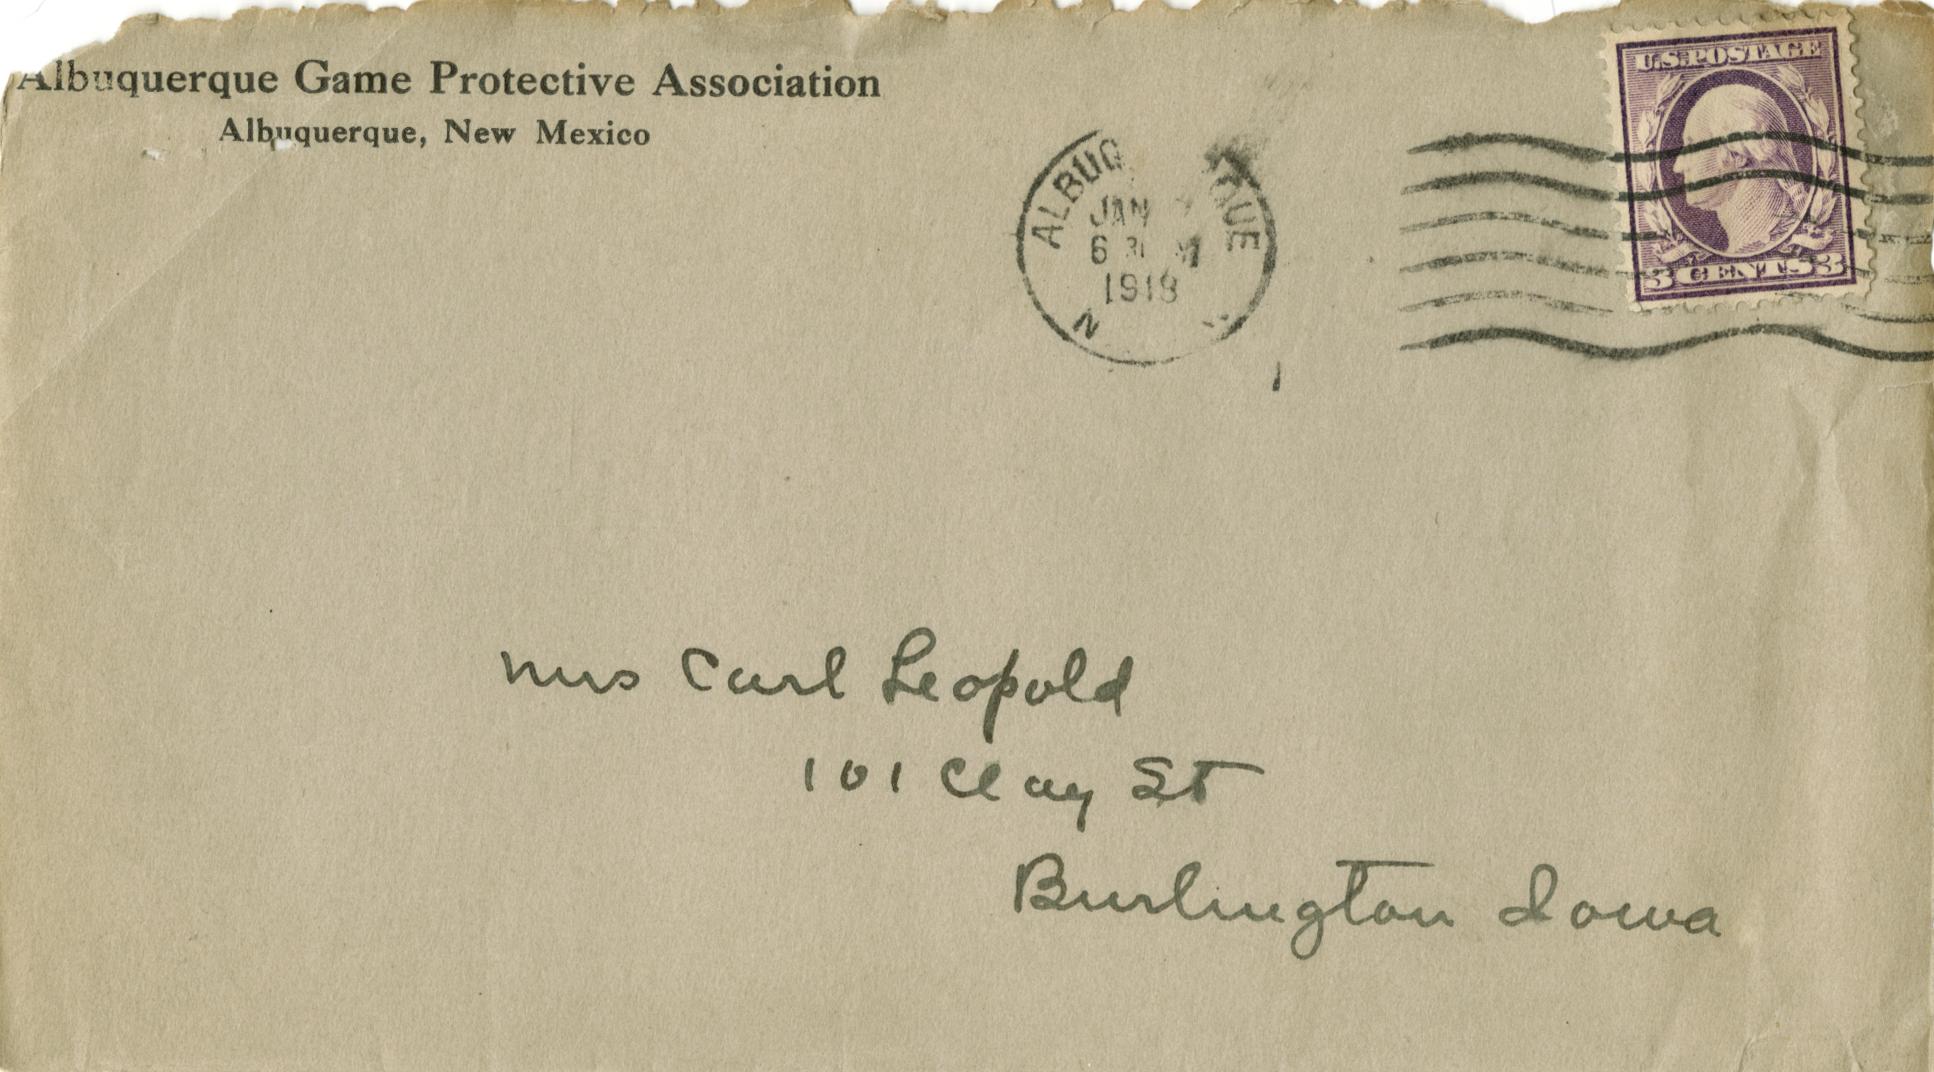 Albuquerque Game Protective Association
Albuquerque, New Mexico
U.S. POSTAGE
3 CENTS 3
JAN
6 30
1918
N
Mrs Carl Leopold
101 Clay St
Burlington Iowa